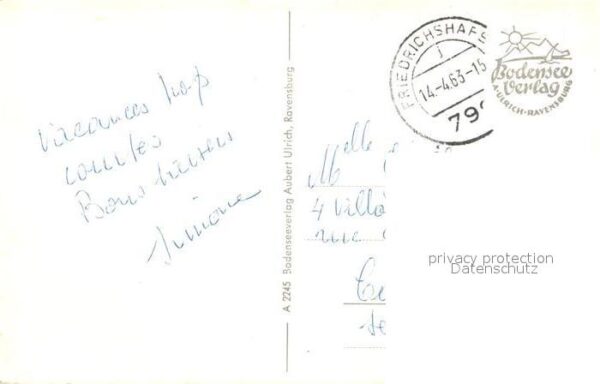 Vacances trop
courtes
Bons baisers
Simone
A 2245 Bodenseeverlag Aubert Ulrich, Ravensburg
FRIEDRICHSHAF
j
14.-4.63-15
799
Bodensee
Verlag
A·ULRICH·RAVENSBURG
Melle
M
4 Villa
rue
privacy protection
Datenschutz